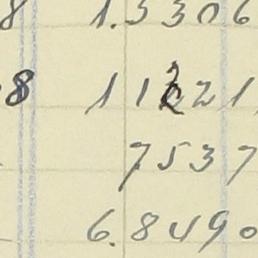 8 1.3306
8 11221
7537
6.8490